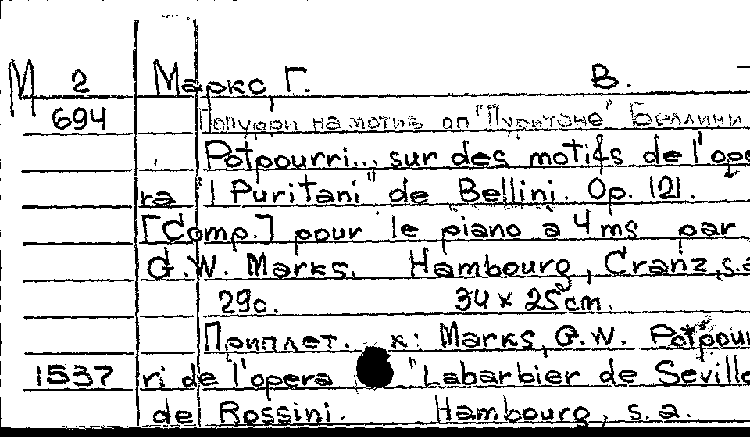 М 2 Маркс, Г. В.
694 Попурри на мотив оп "Пуритане" Беллини
Potpourri... sur des motifs de l'ope
ra "I Puritani" de Bellini. Op. 121.
[Comp.] pour le piano à 4 ms par
G.W. Marks. Hambourg, Cranz, s.a
29c. 34 x 25 cm.
Приплет. к: Marks, G.W. Potpour
1537 ri de l'opera "Labarbier de Seville
de Rossini. Hambourg, s.a.